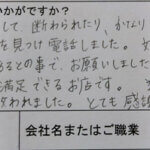 いかがですか?
して 断わられたり、かなり
を見つけ電話しました。
るとの事で、お願いしました
満足できるお店です。
われました。とても感謝
会社名またはご職業